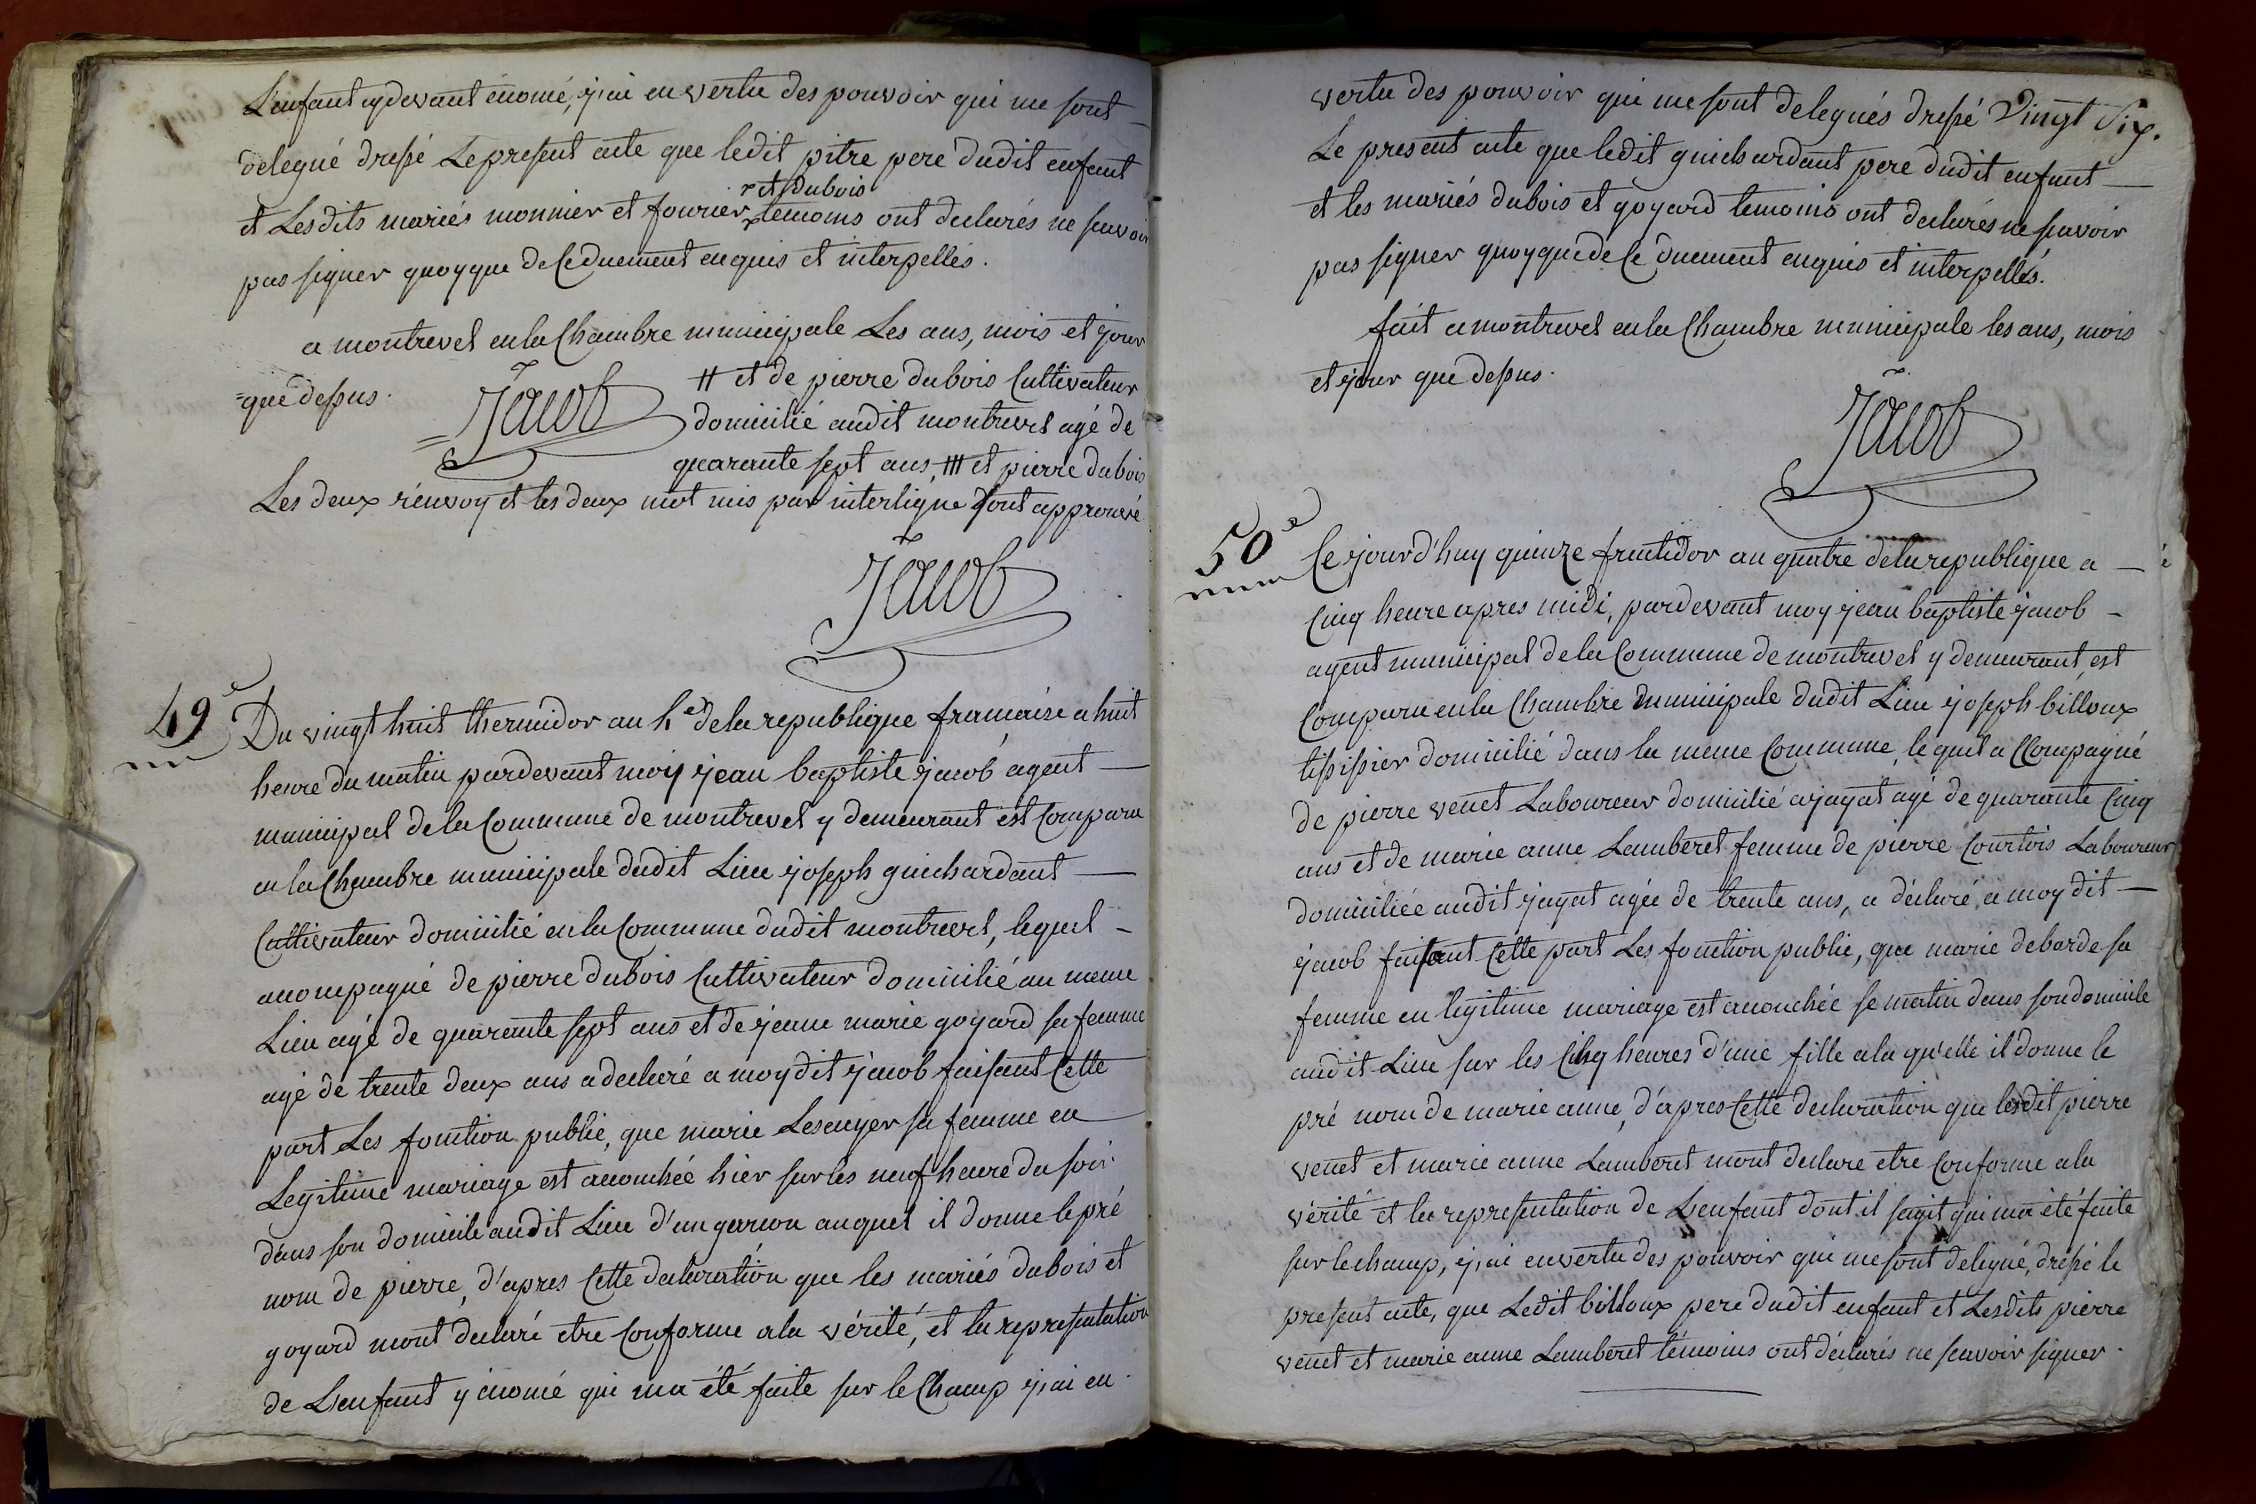 L'enfant cydevant énomé, j'ai en vertu des pouvoir qui me sont
delegué dressé Le present acte que ledit pitre pere dudit enfant
et Lesdits mariés monnier et fourier et dubois temoins ont declarés ne scavoir
pas signer quoyque de Ce duement enquis et interpellés.
a montrevel en la Chambre municipale Les ans, mois et jour
que dessus.
Jacob
# et de pierre dubois Cultivateur
domicilié audit montrevel agé de
quarante sept ans, et pierre dubois
Les deux renvoy et les deux mot mis par interligne sont approuvé
Jacob
49e Du vingt huit thermidor an 4e de la republique française a huit
heure du matin pardevant moy jean baptiste jacob agent
municipal de la Commune de montrevel y demeurant est Comparu
en la Chambre municipale dudit Lieu joseph guichardant
Cultivateur domicilié en la Commune dudit montrevel, lequel
acompagné de pierre dubois Cultivateur domicilié au meme
Lieu agé de quarante sept ans et de jeanne marie goyard sa femme
agé de trente deux ans a declaré a moy dit jacob faisant Cette
part Les fonction public, que marie Lescuyer sa femme en
Legitime mariage est acouchée hier sur les neuf heure du soir
dans son domicile audit Lieu d'un garcon auquel il donne le pré
nom de pierre, d'apres Cette declaration que les mariés dubois et
goyard mont declaré etre Conforme ala vérité, et la representation
de L'enfant y énomé qui ma été faite sur le Champ j'ai en
vingt six.
vertu des pouvoir qui me sont delegués dressé
Le present acte que ledit guichardant pere dudit enfant
et les mariés dubois et goyard temoins ont declarés ne scavoir
pas signer quoyque de Ce duement enquis et interpellés.
fait a montrevel en la Chambre municipale les ans, mois
et jour que dessus.
Jacob
50e Ce jourd'huy quinze fructidor an quatre de la republique a
Cinq heure apres midi, pardevant moy jean baptiste jacob
agent municipal de la Commune de montrevel y demeurant, est
Comparu en la Chambre municipale dudit Lieu joseph billoux
tississier domicilié dans la meme Commune, lequel a CCompagné
de pierre venet Laboureur domicilié a jayat agé de quarante Cinq
ans et de marie anne Lamberet femme de pierre Courtois Laboureur
domiciliée audit jayat agée de trente ans, a déclaré a moy dit
jacob faisant Cette part Les fonction public, que marie deborde sa
femme en legitime mariage est acouchée se matin dans son domicile
audit Lieu sur les Cinq heures d'une fille ala qu'elle il donne le
pré nom de marie anne, d'apres Cette declaration que lesdit pierre
venet et marie anne Lamberet mont declare etre Conforme ala
vérité et la representation de L'enfant dont il s'agit qui ma été faite
sur le champ, j'ai en vertu des pouvoir qui me sont delegué, dressé le
present acte, que Ledit billoux pere dudit enfant et Lesdits pierre
venet et marie anne Lamberet témoins ont déclarés ne scavoir signer.